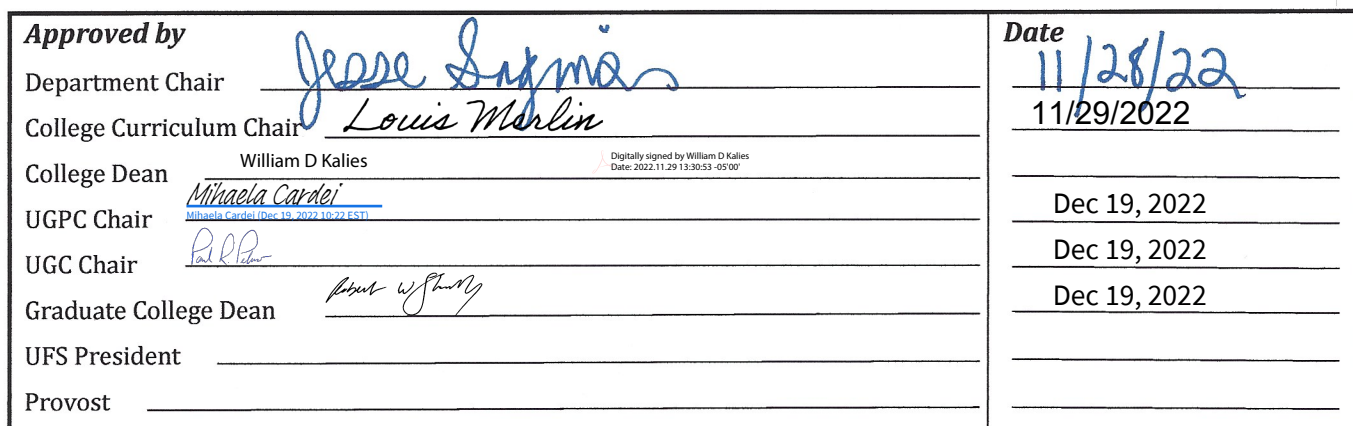 Approved by Date
Department Chair Jesse 11/28/22
College Curriculum Chair Louis Merlin 11/29/2022
College Dean William D Kalies Digitally signed by William D Kalies
Date: 2022.11.29 13:30:53 -05'00'
Mihaela Cardei
UGPC Chair Mihaela Cardei (Dec 19, 2022 10:22 EST) Dec 19, 2022
UGC Chair Paul R. Dec 19, 2022
Graduate College Dean Robert W Dec 19, 2022
UFS President
Provost